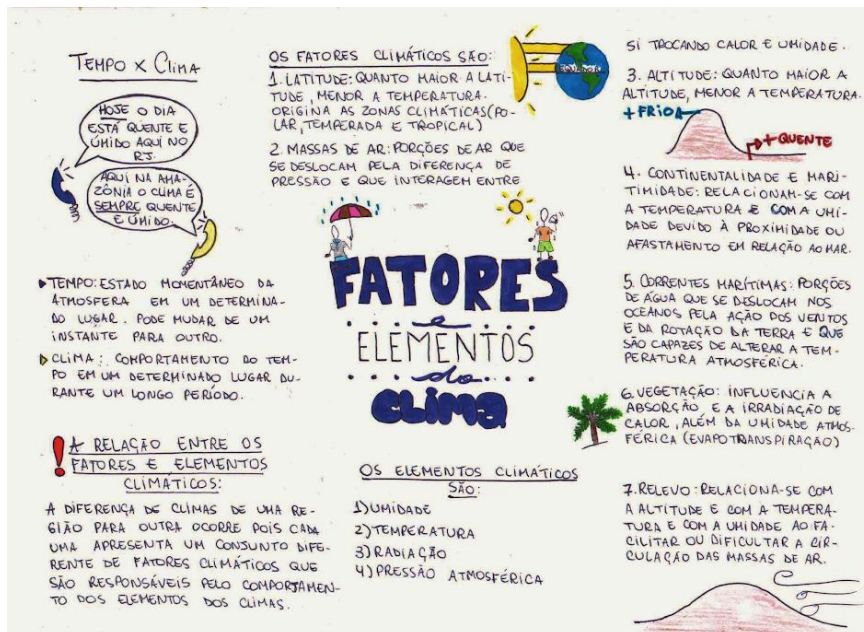 TEMPO X CLIMA
HOJE O DIA
ESTÁ QUENTE E
ÚMIDO AQUI NO
RJ.
AQUI NA AMA-
ZÔNIA O CLIMA É
SEMPRE QUENTE
E ÚMIDO.
TEMPO: ESTADO MOMENTÂNEO DA
ATMOSFERA EM UM DETERMINA-
DO LUGAR. PODE MUDAR DE UM
INSTANTE PARA OUTRO.
CLIMA: COMPORTAMENTO DO TEM-
PO EM UM DETERMINADO LUGAR DU-
RANTE UM LONGO PERÍODO.
! A RELAÇÃO ENTRE OS
FATORES E ELEMENTOS
CLIMÁTICOS:
A DIFERENÇA DE CLIMAS DE UMA RE-
GIÃO PARA OUTRA OCORRE POIS CADA
UMA APRESENTA UM CONJUNTO DIFE-
RENTE DE FATORES CLIMÁTICOS QUE
SÃO RESPONSÁVEIS PELO COMPORTAMEN-
TO DOS ELEMENTOS DOS CLIMAS.
OS FATORES CLIMÁTICOS SÃO:
1. LATITUDE: QUANTO MAIOR A LATI-
TUDE, MENOR A TEMPERATURA.
ORIGINA AS ZONAS CLIMÁTICAS (PO-
LAR, TEMPERADA E TROPICAL)
2. MASSAS DE AR: PORÇÕES DE AR QUE
SE DESLOCAM PELA DIFERENÇA DE
PRESSÃO E QUE INTERAGEM ENTRE
EQUADOR
FATORES
e
ELEMENTOS
do
CLIMA
OS ELEMENTOS CLIMÁTICOS
SÃO:
1) UMIDADE
2) TEMPERATURA
3) RADIAÇÃO
4) PRESSÃO ATMOSFÉRICA
SI TROCANDO CALOR E UMIDADE.
3. ALTITUDE: QUANTO MAIOR A
ALTITUDE, MENOR A TEMPERATURA.
+ FRIO
+ QUENTE
4. CONTINENTALIDADE E MARI-
TIMIDADE: RELACIONAM-SE COM
A TEMPERATURA E COM A UMI-
DADE DEVIDO À PROXIMIDADE OU
AFASTAMENTO EM RELAÇÃO AO MAR.
5. CORRENTES MARÍTIMAS: PORÇÕES
DE ÁGUA QUE SE DESLOCAM NOS
OCEANOS PELA AÇÃO DOS VENTOS
E DA ROTAÇÃO DA TERRA E QUE
SÃO CAPAZES DE ALTERAR A TEM-
PERATURA ATMOSFÉRICA.
6. VEGETAÇÃO: INFLUENCIA A
ABSORÇÃO E A IRRADIAÇÃO DE
CALOR, ALÉM DA UMIDADE ATMOS-
FÉRICA (EVAPOTRANSPIRAÇÃO)
7. RELEVO: RELACIONA-SE COM
A ALTITUDE E COM A TEMPERA-
TURA E COM A UMIDADE AO FA-
CILITAR OU DIFICULTAR A CIR-
CULAÇÃO DAS MASSAS DE AR.